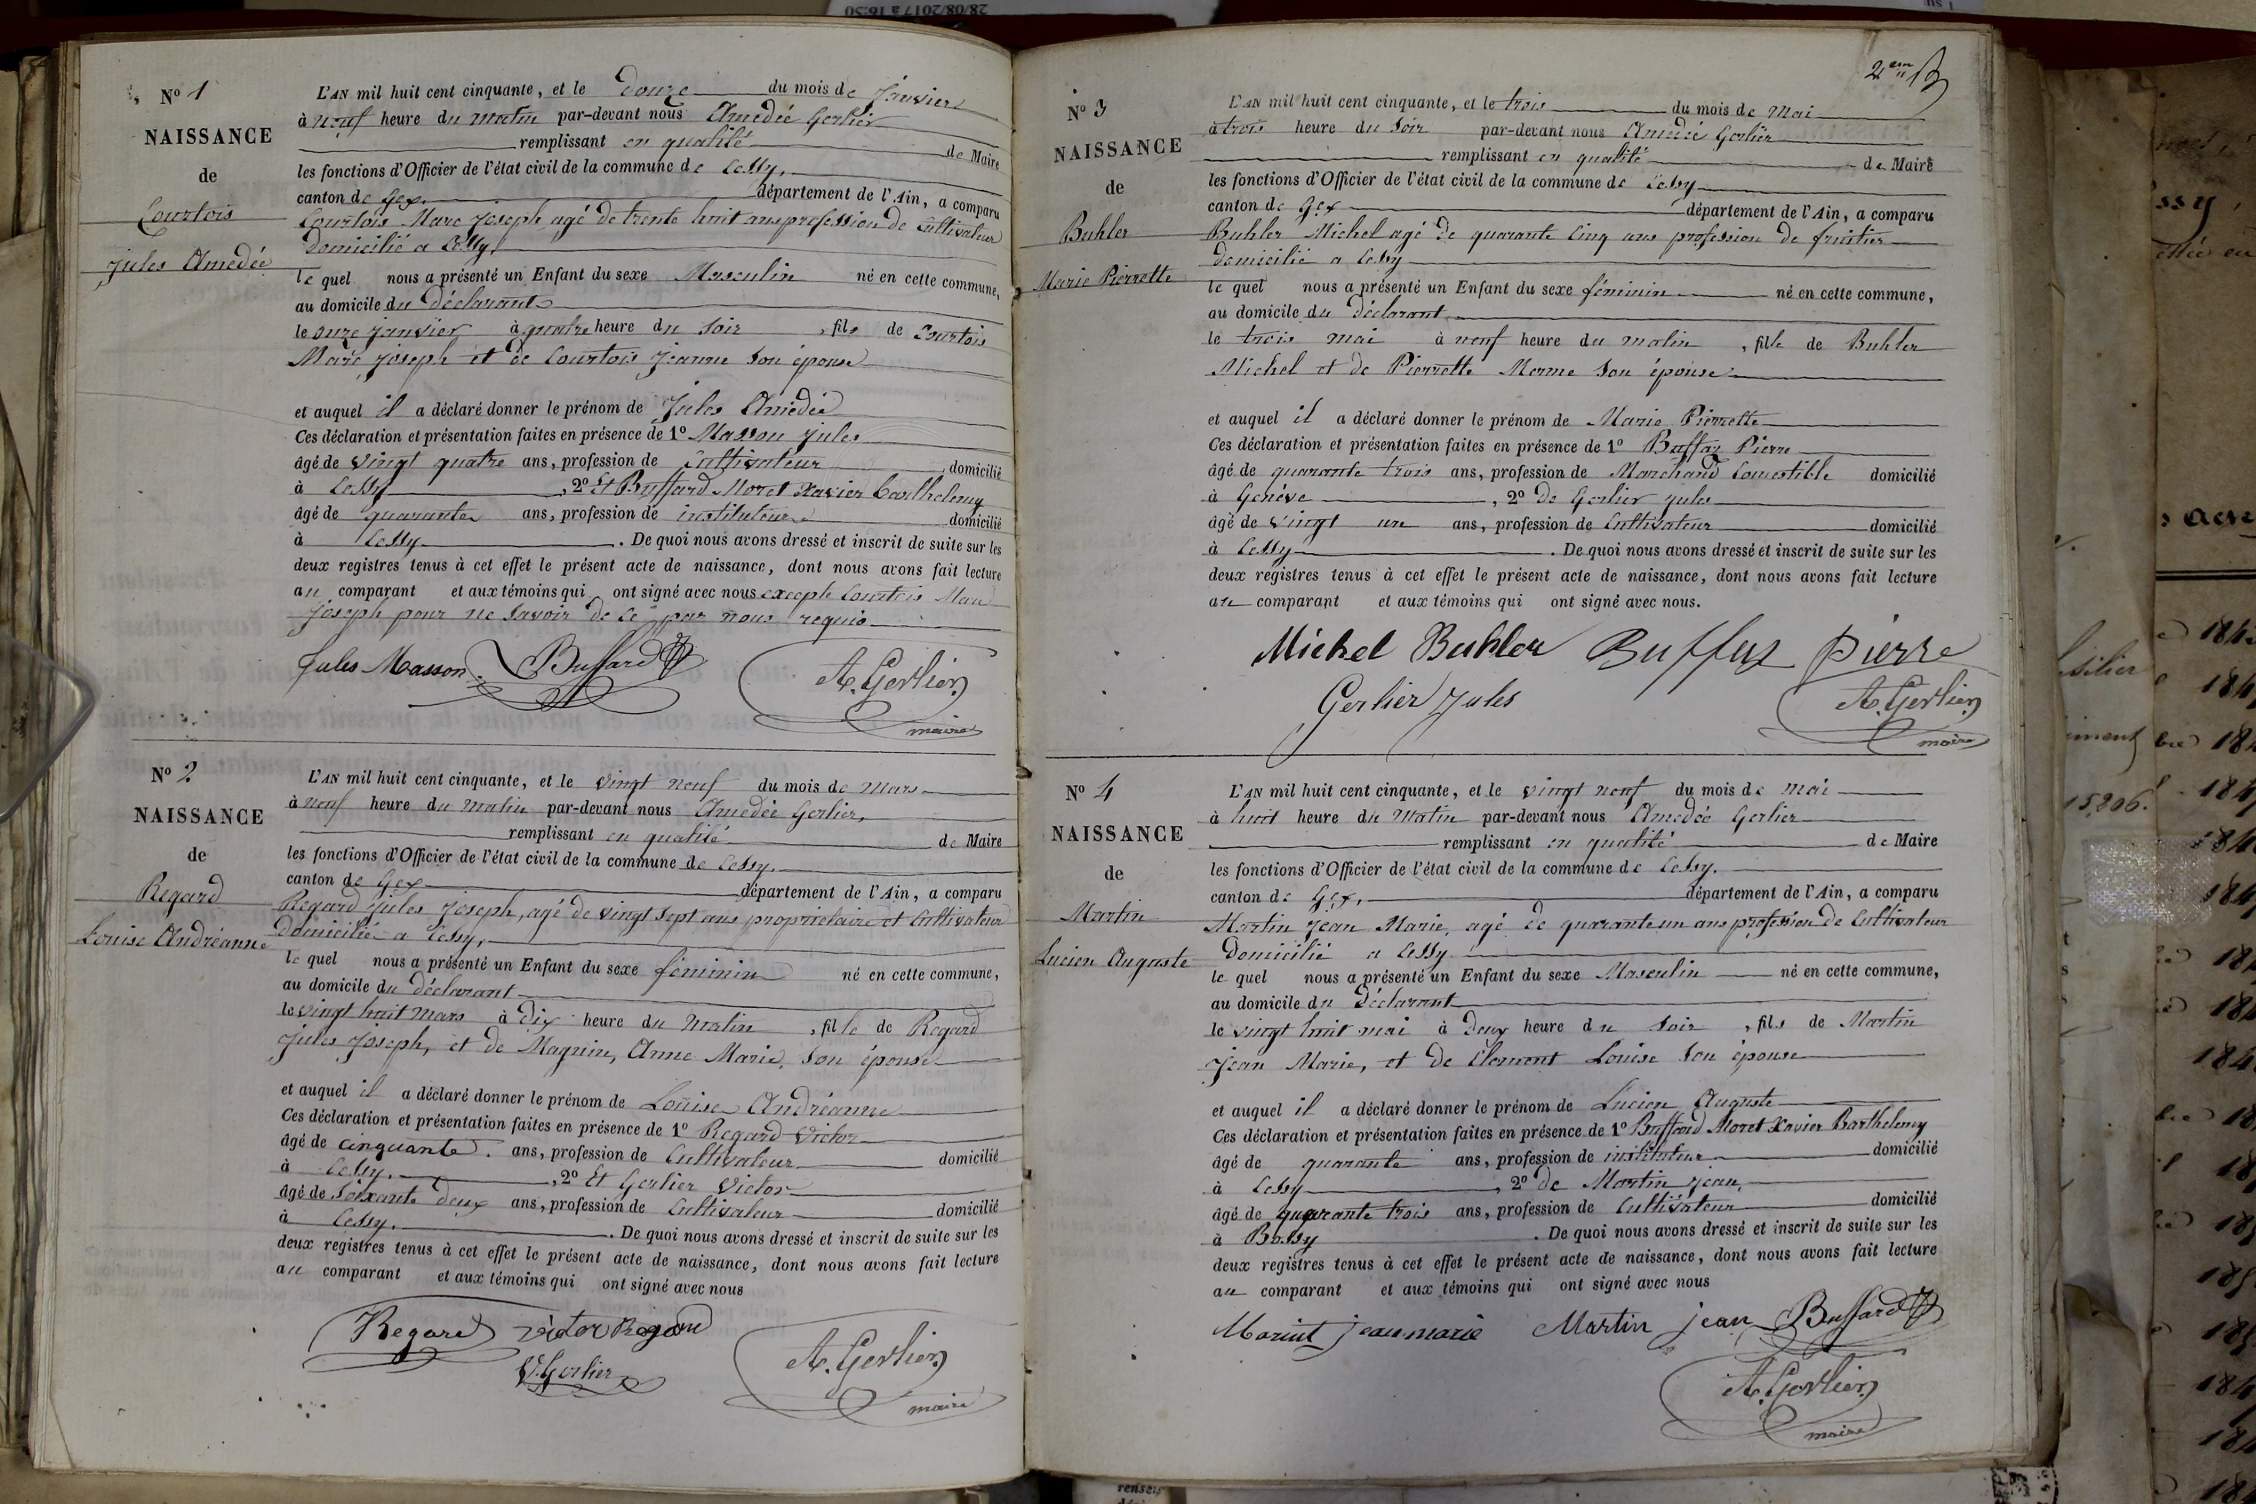 28/08/2017 à 16:50
Nº 1
NAISSANCE
de
Courtois
Jules Amedée
L'AN mil huit cent cinquante, et le Douze du mois de Janvier
à neuf heure du matin par-devant nous Amedée Gerlier
remplissant en qualité de Maire
les fonctions d'Officier de l'état civil de la commune de Cessy,
canton de Gex. département de l'Ain, a comparu
Courtois Marc Joseph, agé de trente huit ans profession de Cultivateur
Domicilié a Cessy,
le quel nous a présenté un Enfant du sexe Masculin né en cette commune,
au domicile du Déclarant
le onze janvier à quatre heure du Soir, fils de Courtois
Marc Joseph et de Courtois Jeanne son épouse
et auquel il a déclaré donner le prénom de Jules Amédée
Ces déclaration et présentation faites en présence de 1º Masson Jules
âgé de vingt quatre ans, profession de Cultivateur domicilié
à Cessy, 2º Et Buffard Moret Xavier Barthelemy
âgé de quarante ans, profession de instituteur domicilié
à Cessy. De quoi nous avons dressé et inscrit de suite sur les
deux registres tenus à cet effet le présent acte de naissance, dont nous avons fait lecture
au comparant et aux témoins qui ont signé avec nous excepté Courtois Marc
Joseph pour ne Savoir de ce par nous requis
Jules Masson Buffard A. Gerlier
maire
Nº 2
NAISSANCE
de
Regard
Louise Andréanne
L'AN mil huit cent cinquante, et le vingt neuf du mois de Mars
à neuf heure du Matin par-devant nous Amedée Gerlier,
remplissant en qualité de Maire
les fonctions d'Officier de l'état civil de la commune de Cessy,
canton de Gex département de l'Ain, a comparu
Regard Jules Joseph, agé de vingt sept ans propriétaire et Cultivateur
Domicilié a Cessy,
le quel nous a présenté un Enfant du sexe féminin né en cette commune,
au domicile du Déclarant
le vingt huit Mars à Dix heure du Matin, fille de Regard
Jules Joseph, et de Magnin, Anne Marie, son épouse
et auquel il a déclaré donner le prénom de Louise Andréanne
Ces déclaration et présentation faites en présence de 1º Regard Victor
âgé de cinquante ans, profession de Cultivateur domicilié
à Cessy, 2º Et Gerlier Victor
âgé de Soixante deux ans, profession de Cultivateur domicilié
à Cessy. De quoi nous avons dressé et inscrit de suite sur les
deux registres tenus à cet effet le présent acte de naissance, dont nous avons fait lecture
au comparant et aux témoins qui ont signé avec nous
Regard victor Regard
V. Gerlier A. Gerlier
maire
2em
Nº 3
NAISSANCE
de
Buhler
Marie Pierrette
L'AN mil huit cent cinquante, et le trois du mois de Mai
à trois heure du Soir par-devant nous Amedée Gerlier
remplissant en qualité de Maire
les fonctions d'Officier de l'état civil de la commune de Cessy
canton de Gex département de l'Ain, a comparu
Buhler Michel agé de quarante cinq ans profession de fruitier
Domicilié a Cessy
le quel nous a présenté un Enfant du sexe féminin né en cette commune,
au domicile du Déclarant
le trois mai à neuf heure du matin, fille de Buhler
Michel et de Pierrette Merme son épouse
et auquel il a déclaré donner le prénom de Marie Pierrette
Ces déclaration et présentation faites en présence de 1º Buffaz Pierre
âgé de quarante trois ans, profession de Marchand Comestible domicilié
à Genève, 2º de Gerlier Jules
âgé de vingt un ans, profession de Cultivateur domicilié
à Cessy. De quoi nous avons dressé et inscrit de suite sur les
deux registres tenus à cet effet le présent acte de naissance, dont nous avons fait lecture
au comparant et aux témoins qui ont signé avec nous.
Michel Buhler Buffaz Pierre
Gerlier Jules A. Gerlier
maire
Nº 4
NAISSANCE
de
Martin
Lucien Auguste
L'AN mil huit cent cinquante, et le vingt neuf du mois de Mai
à huit heure du Matin par-devant nous Amedée Gerlier
remplissant en qualité de Maire
les fonctions d'Officier de l'état civil de la commune de Cessy.
canton de Gex, département de l'Ain, a comparu
Martin Jean Marie, agé de quarante un ans profession de Cultivateur
Domicilié a Cessy
le quel nous a présenté un Enfant du sexe Masculin né en cette commune,
au domicile du Déclarant
le vingt huit mai à Deux heure du Soir, fils de Martin
Jean Marie, et de Clement Louise Son épouse
et auquel il a déclaré donner le prénom de Lucien Auguste
Ces déclaration et présentation faites en présence de 1º Buffard Moret Xavier Barthelemy
âgé de quarante ans, profession de instituteur domicilié
à Cessy, 2º de Martin Jean,
âgé de quarante trois ans, profession de Cultivateur domicilié
à Bossy. De quoi nous avons dressé et inscrit de suite sur les
deux registres tenus à cet effet le présent acte de naissance, dont nous avons fait lecture
au comparant et aux témoins qui ont signé avec nous
jean marie Martin jean Buffard
A. Gerlier
maire